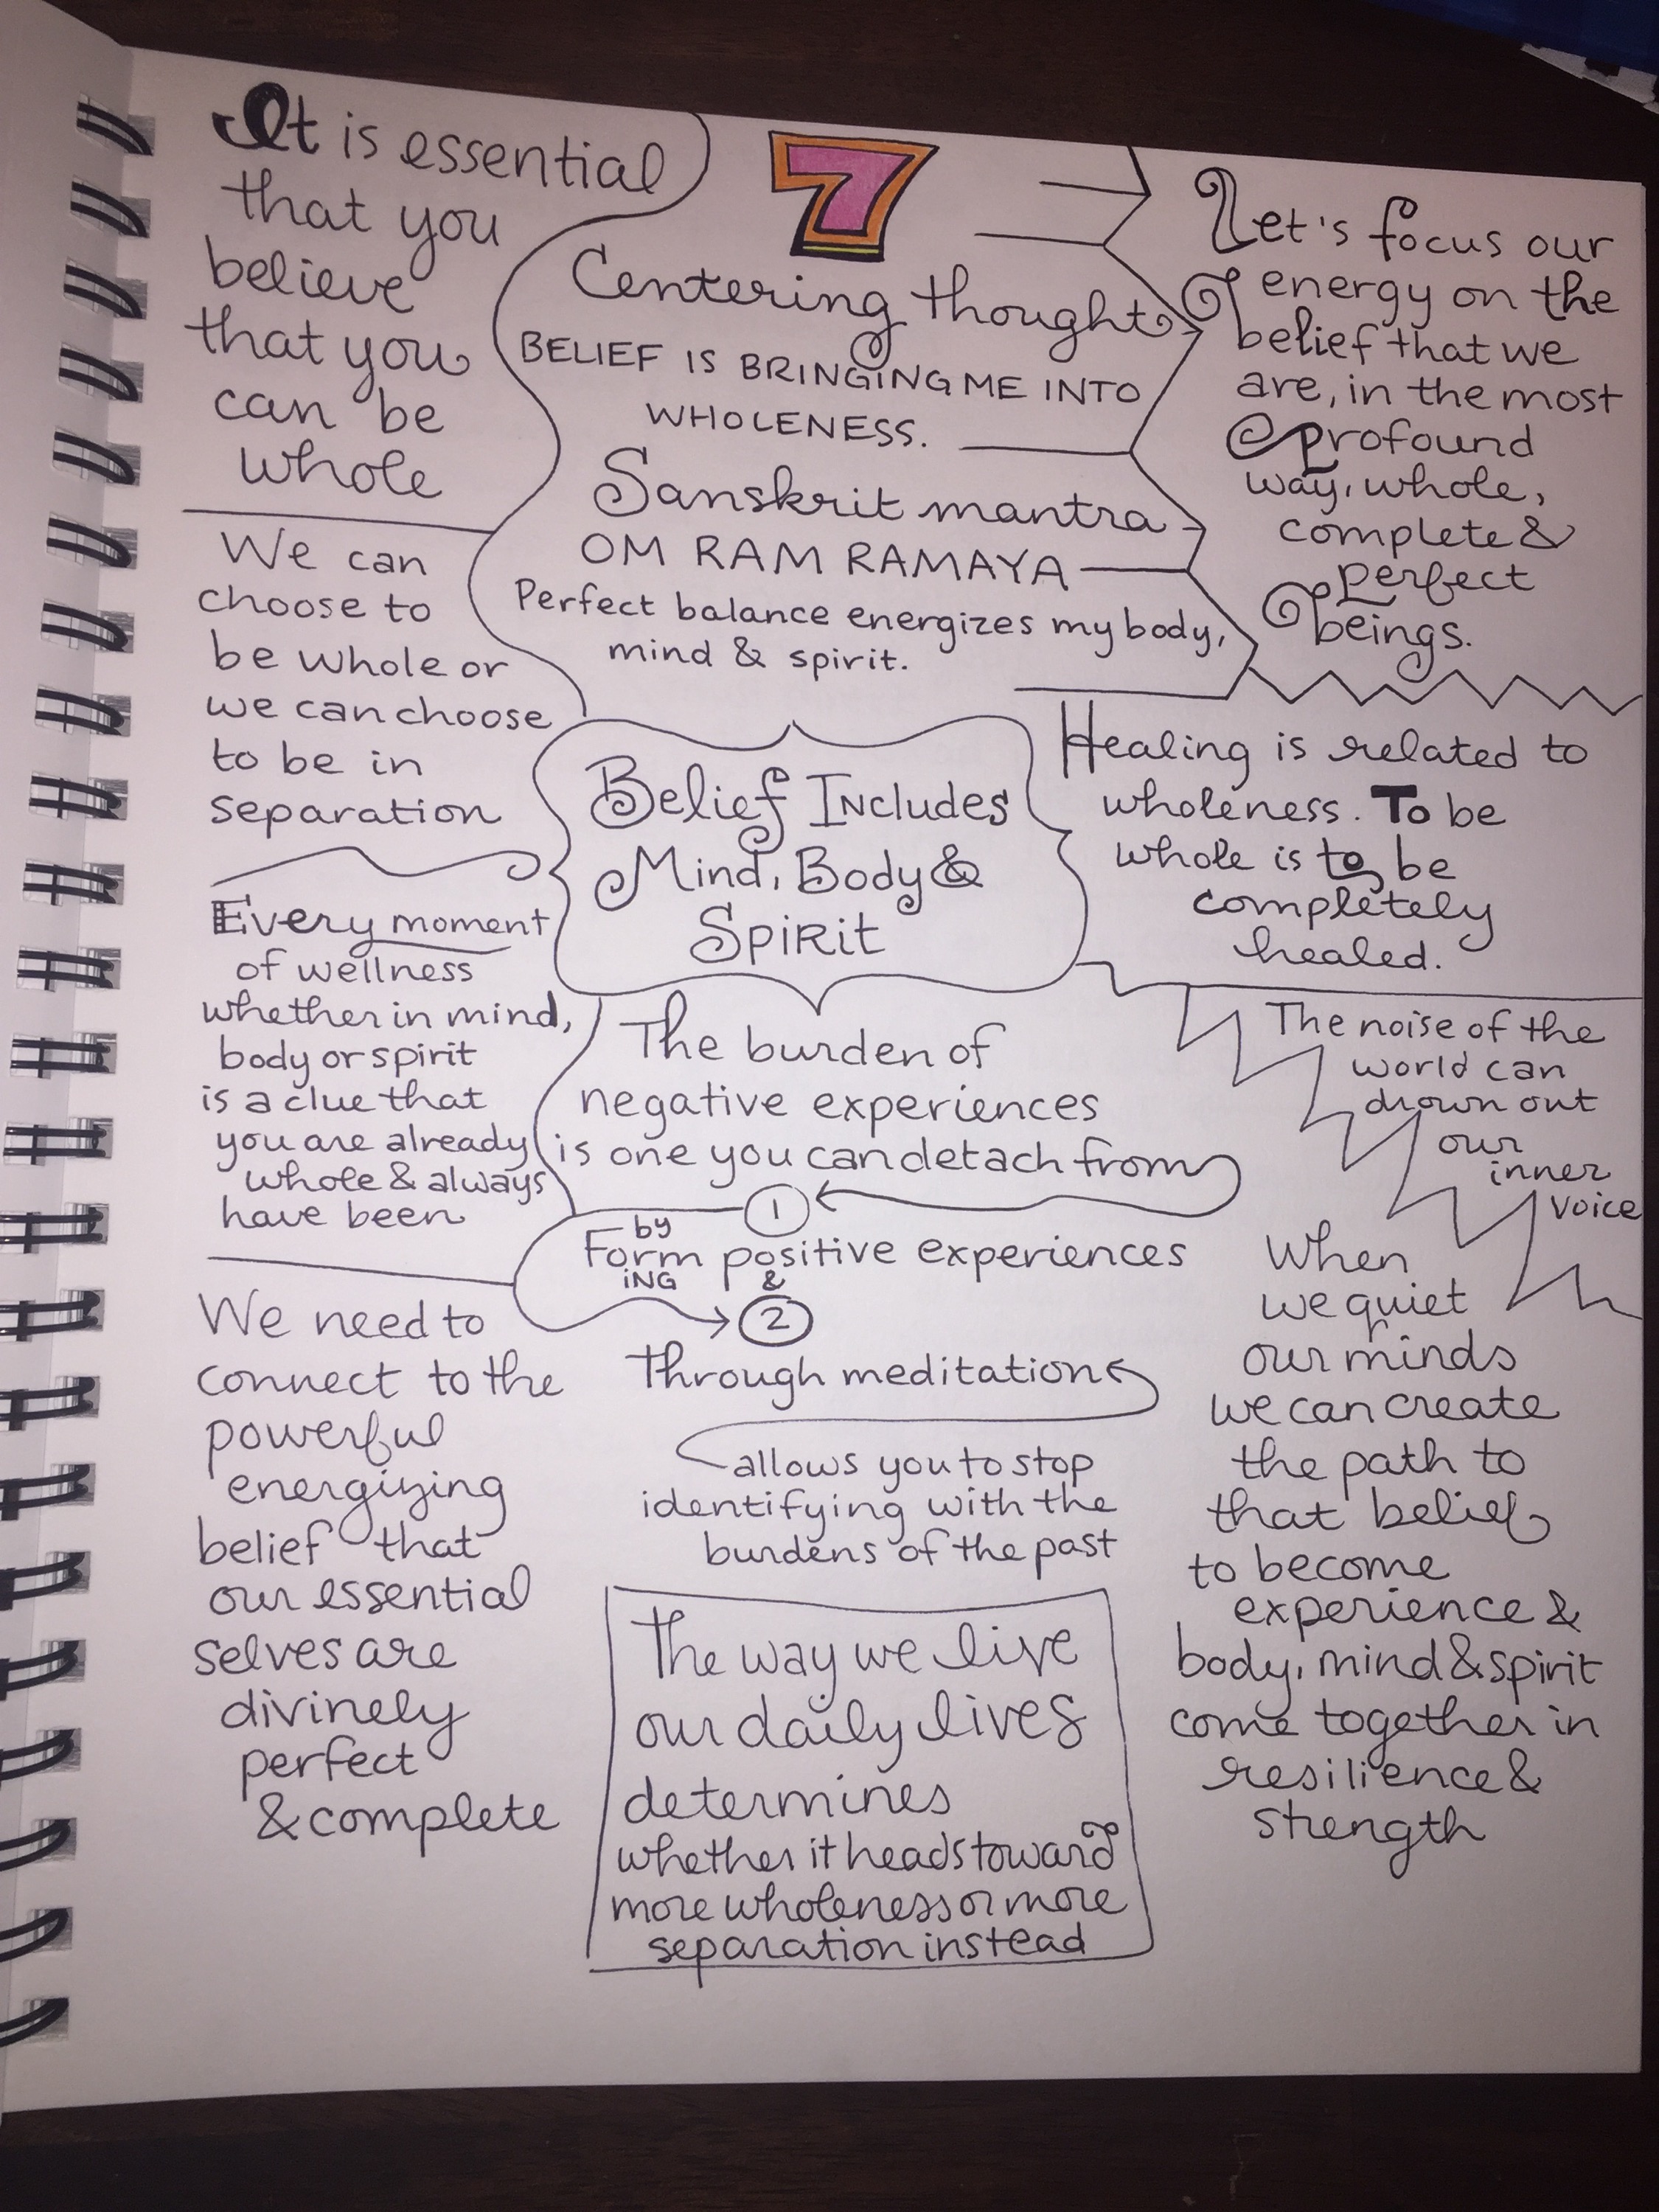 It is essential
that you
believe
that you
can be
whole
We can
choose to
be whole or
we can choose
to be in
separation
Every moment
of wellness
whether in mind,
body or spirit
is a clue that
you are already
whole & always
have been
We need to
connect to the
powerful
energizing
belief that
our essential
selves are
divinely
perfect
& complete
7
Centering thought
BELIEF IS BRINGING ME INTO
WHOLENESS.
Sanskrit mantra
OM RAM RAMAYA
Perfect balance energizes my body,
mind & spirit.
Belief Includes
Mind, Body &
Spirit
The burden of
negative experiences
is one you can detach from
1
by
Form positive experiences
ING &
2
Through meditation
allows you to stop
identifying with the
burdens of the past
The way we live
our daily lives
determines
whether it heads toward
more wholeness or more
separation instead
Let's focus our
energy on the
belief that we
are, in the most
profound
way, whole,
complete &
perfect
beings.
Healing is related to
wholeness. To be
whole is to be
completely
healed.
The noise of the
world can
drown out
our
inner
voice
When
we quiet
our minds
we can create
the path to
that belief
to become
experience &
body, mind & spirit
come together in
resilience &
strength